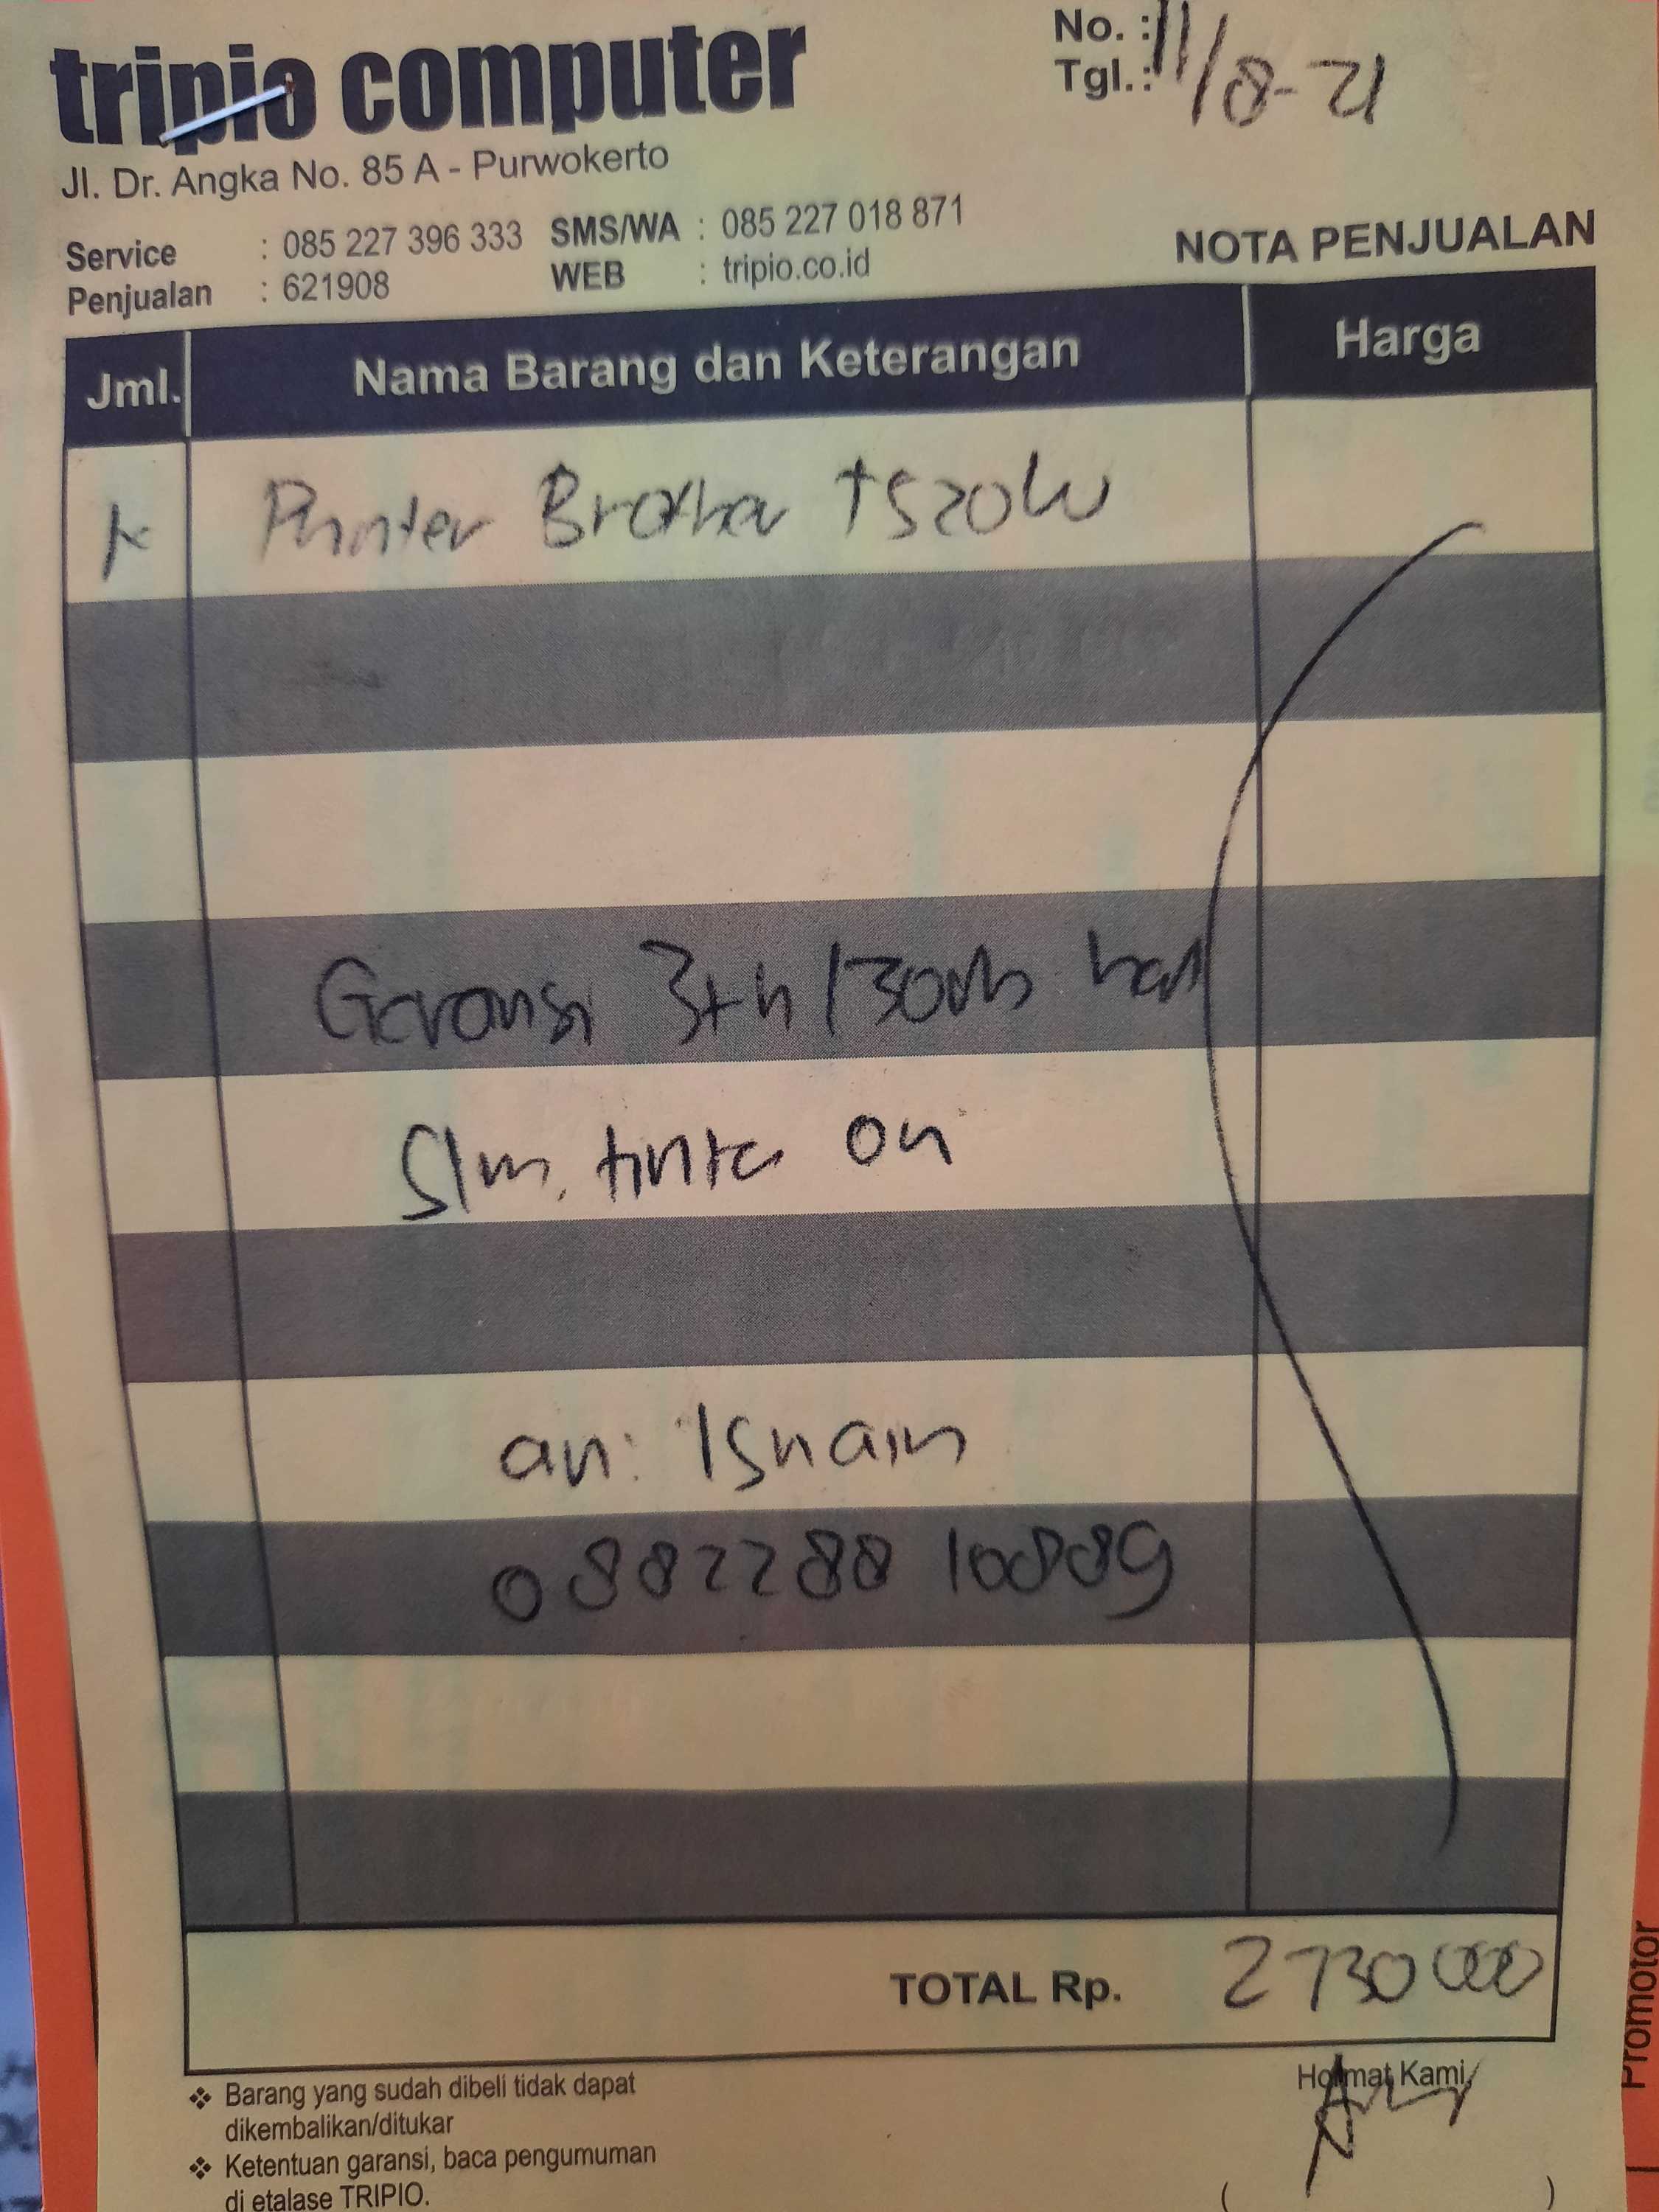 tripio computer
Jl. Dr. Angka No. 85 A - Purwokerto
No. :
Tgl. : 11/8-21
Service : 085 227 396 333 SMS/WA : 085 227 018 871
Penjualan : 621908 WEB : tripio.co.id
NOTA PENJUALAN
Jml. Nama Barang dan Keterangan Harga
Printer Brother T520W
Garansi 3th/30rb
Slm. tinta ori
an: Isnain
0882288 10889
TOTAL Rp. 2730000
Hormat Kami,
❖ Barang yang sudah dibeli tidak dapat
dikembalikan/ditukar
❖ Ketentuan garansi, baca pengumuman
di etalase TRIPIO.
( )
Promotor